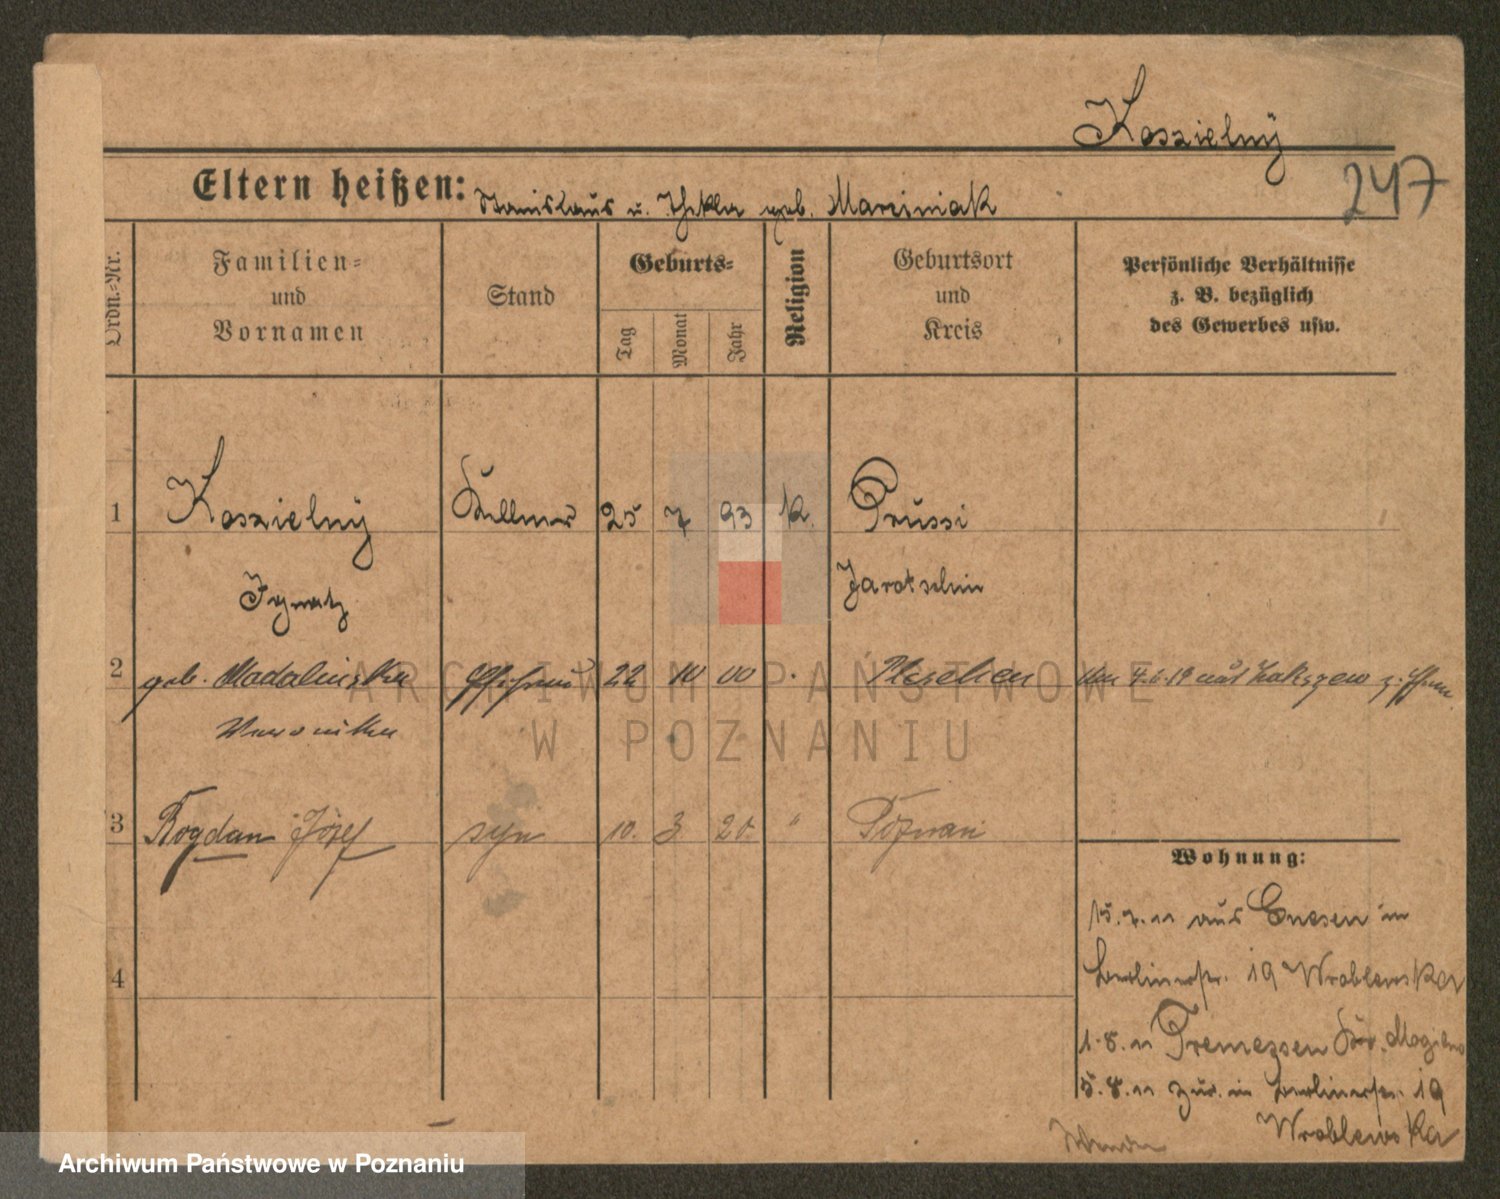 Koszielny
247
Eltern heißen: Stanislaus u. Thekla geb. Marciniak
Ordn.-Nr.
Familien-
und
Vornamen
Stand
Geburts-
Tag
Monat
Jahr
Religion
Geburtsort
und
Kreis
Persönliche Verhältnisse
z. B. bezüglich
des Gewerbes usw.
1 Koszielny Kellner 25 7 93 k. Prussi
Ignatz Jarotschin
2 geb. Madalinska Ehefrau 22 10 00 Pleschen 4.6.19 aus
Veronika
3 Bogdan Józef syn 10. 3 20. " Poznań
Wohnung:
15.7.11 aus Gnesen in
Berlinerstr. 19 Wroblewska
4
1.8.11 Tremessen Mogilno
5.8.11 zur. in Berlinerstr. 19
Wroblewska
Wenden
ARCHIWUM PAŃSTWOWE
W POZNANIU
Archiwum Państwowe w Poznaniu